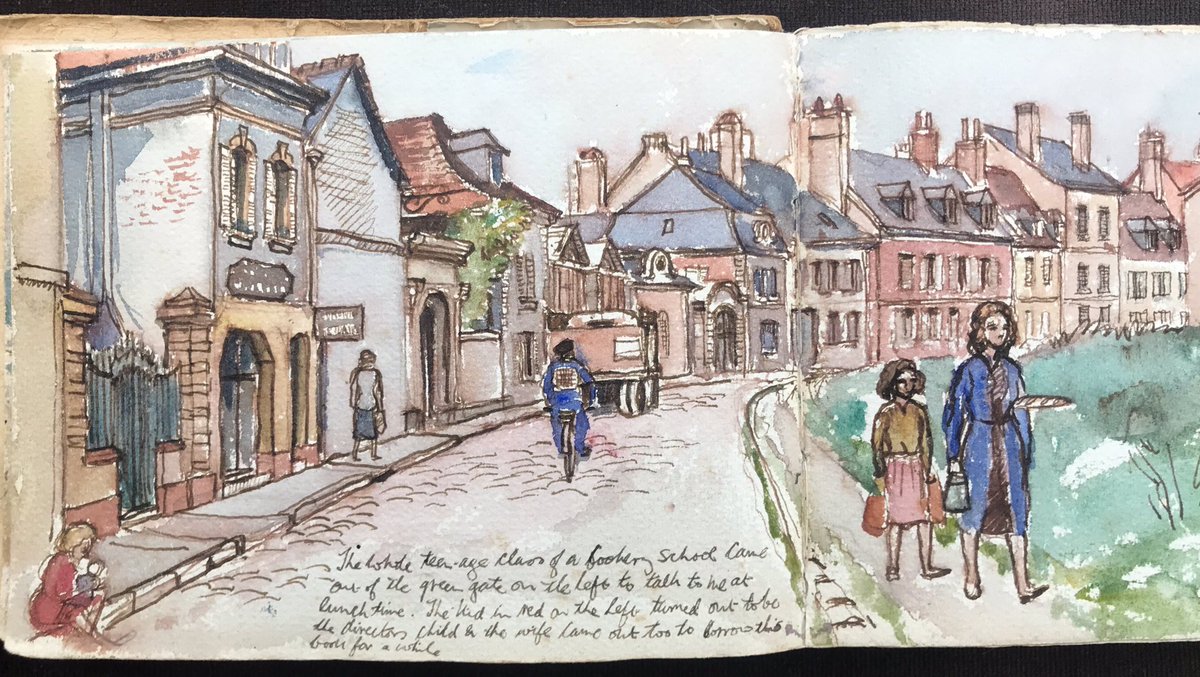 The whole teen-age class of a Cookery School came
out of the green gate on the left to talk to me at
lunch time. The kid in red on the left turned out to be
the directors child & the wife came out too to borrow this
book for a while